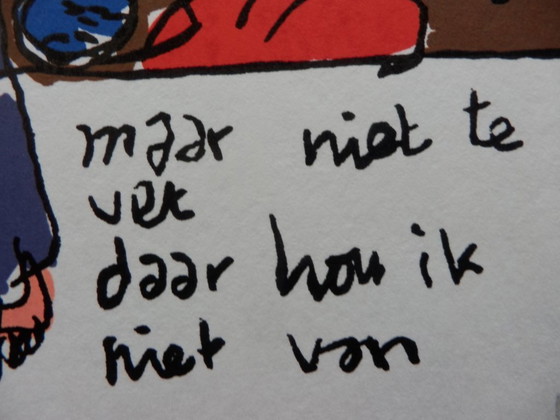 maar niet te
vet
daar hou ik
niet van